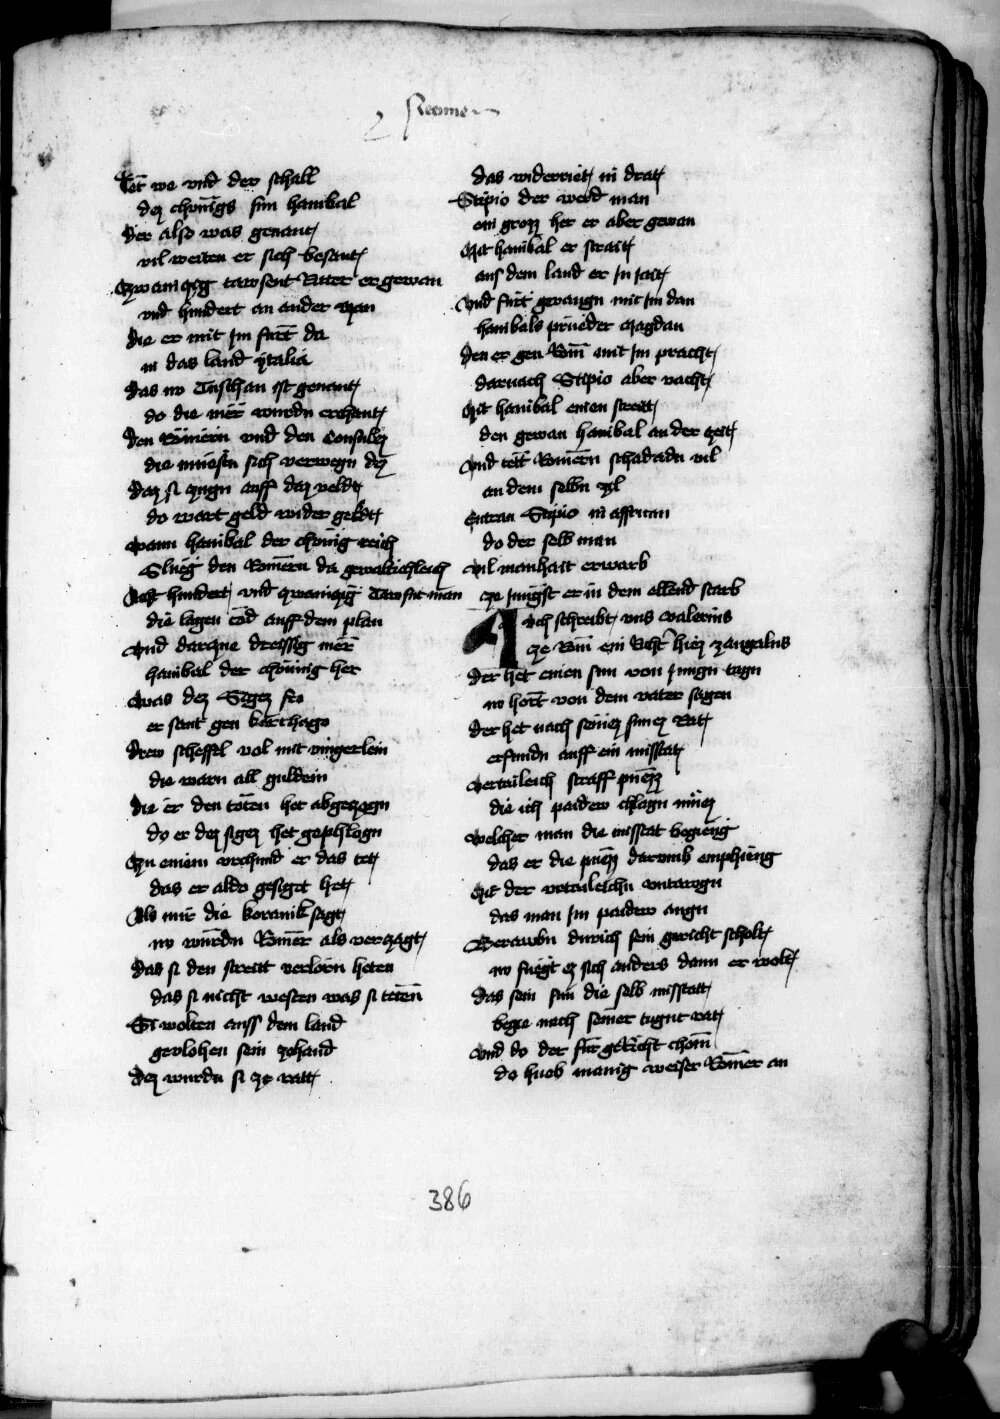 Romer
Tet we vnd der schall
dez chönigs sun hanibal
der also was genant
vil weiten er sich besant
Zwainczig tawsent Ritter er gewan
vnd hundert an ander man
die er mit Im fürt da
in das land ytalia
das nw Tuschan ist genant
do die mër wurdn erchant
den Römern vnd den Consules
die muesstn sich verwegn dez
daz si zugn auff daz veldt
do wart geld wider geldt
wann hanibal der chönig reich
Slueg den Romern da gewaltichleich
acht hundert vnd zwainczig Tawsnt man
die lagen tod auff dem plan
vnd darczue dreissig mer
hanibal der chöning her
was dez Sigez fro
er sant gen karthago
drew scheffel vol mit vingerlein
die warn all guldein
die er den toten het abgeczogn
do er dez sigez het gephlogn
Zu einem vrchund er das tet
das er aldo gesiget het
Als mir die koranik sagt
nw wurdn Romer als verczagt
das si den streitt verlorn heten
das si nicht westen was si teten
Si wolten auss dem land
gevlohen sein zehand
dez wurdn si ze ratt
das widerriet in drat
Scipio der werd man
ein grozz her er aber gewan
Mit hanibal er strait
aus dem land er In jait
vnd fürt gevangn mit im dan
hanibals prueder Magdan
den er gen Rom mit Im pracht
darnach Scipio aber vacht
Mit hanibal einen streitt
den gewan hanibal an der zeit
vnd tett Romern schadadn vil
an dem selbn zil
Entran Scipio in affricam
do der selb man
vil manhait erwarb
ze Jungst er in dem ellend starb
Avch schreibt vns valerius
ze Rom ein Richter hiez zangelius
der het einen sun von Jungn tagn
nw hort von dem vater sagen
der het nach seinez sinez rat
erfundn auff ein misstat
vertuleich straff puezz
die ich paider chlagn muez
welcher man die misstat begieng
das er die puezz darumb emphieng
Mit der vrtailleichn vntarogn
das man Im paider augn
Berawbn durich sein gericht scholt
nw fuegt ez sich anders dann er wolt
das sein sun die selb misstatt
begie nach seiner tugnt rat
vnd do der für gericht chom
do hueb manig weiser Romer an
386